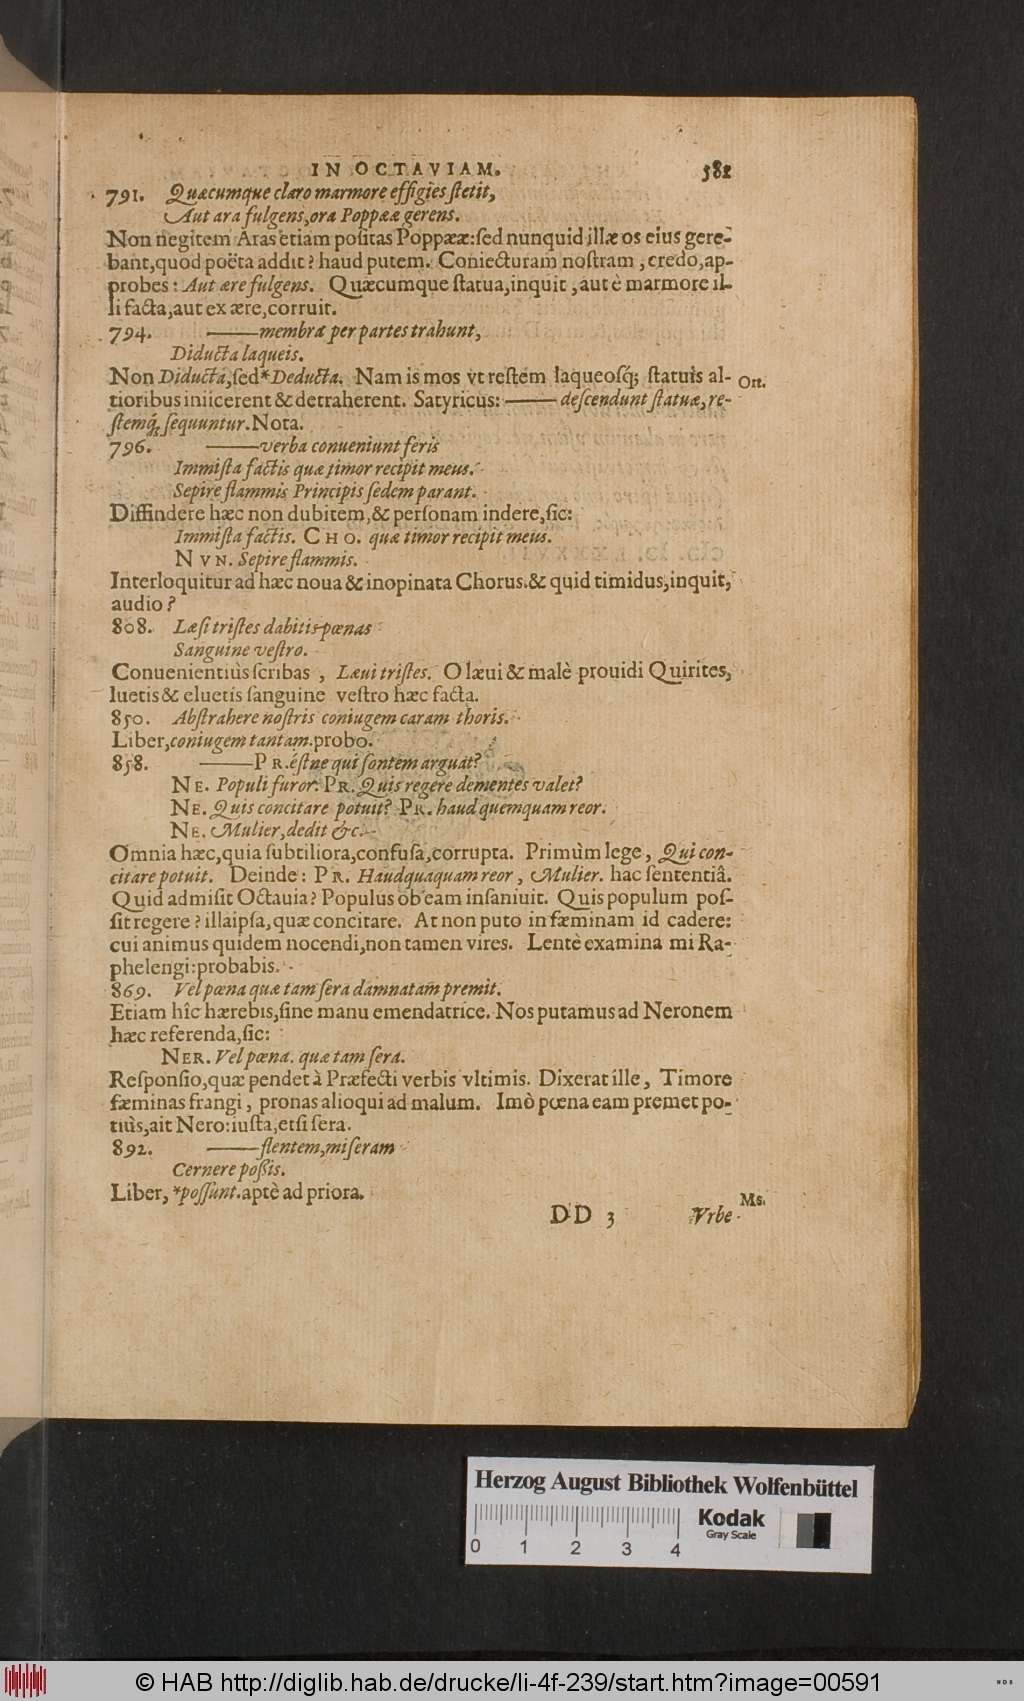 IN OCTAVIAM. 581
791. Quæcumque claro marmore effigies ſtetit,
Aut ara fulgens, ora Poppææ gerens.
Non negitem Aras etiam poſitas Poppææ: ſed nunquid illæ os eius gere-
bant, quod poëta addit? haud putem. Coniecturam noſtram, credo, ap-
probes: Aut ære fulgens. Quæcumque ſtatua, inquit, aut è marmore il-
li facta, aut ex ære, corruit.
794. ——membra per partes trahunt,
Diducta laqueis.
Non Diducta, ſed *Deducta. Nam is mos vt reſtem laqueoſq; ſtatuis al- Ort.
tioribus iniicerent & detraherent. Satyricus: —— deſcendunt ſtatuæ, re-
ſtemq; ſequuntur. Nota.
796. ——verba conueniunt feris
Immiſta factis quæ timor recipit meus.
Sepire flammis Principis ſedem parant.
Diffindere hæc non dubitem, & perſonam indere, ſic:
Immiſta factis. CHO. quæ timor recipit meus.
NVN. Sepire flammis.
Interloquitur ad hæc noua & inopinata Chorus. & quid timidus, inquit,
audio?
808. Læſi triſtes dabitis pœnas
Sanguine veſtro.
Conuenientiùs ſcribas, Læui triſtes. O læui & malè prouidi Quirites,
luetis & eluetis ſanguine veſtro hæc facta.
850. Abſtrahere noſtris coniugem caram thoris.
Liber, coniugem tantam. probo.
858. ——PR. éſtne qui ſontem arguat?
NE. Populi furor. PR. Quis regere dementes valet?
NE. Quis concitare potuit? PR. haud quemquam reor.
NE. Mulier, dedit &c.
Omnia hæc, quia ſubtiliora, confuſa, corrupta. Primùm lege, Qui con-
citare potuit. Deinde: PR. Haudquaquam reor, Mulier. hac ſententiâ.
Quid admiſit Octauia? Populus ob eam inſaniuit. Quis populum poſ-
ſit regere? illa ipſa, quæ concitare. At non puto in fæminam id cadere:
cui animus quidem nocendi, non tamen vires. Lentè examina mi Ra-
phelengi: probabis.
869. Vel pœna quæ tam ſera damnatam premit.
Etiam hîc hærebis, ſine manu emendatrice. Nos putamus ad Neronem
hæc referenda, ſic:
NER. Vel pœna. quæ tam ſera.
Reſponſio, quæ pendet à Præfecti verbis vltimis. Dixerat ille, Timore
fæminas frangi, pronas alioqui ad malum. Imò pœna eam premet po-
tiùs, ait Nero: iuſta, etſi ſera.
892. ——flentem, miſeram
Cernere poſſis.
Liber, *poſſunt. aptè ad priora. Ms.
DD 3 Vrbe
Herzog August Bibliothek Wolfenbüttel
0 1 2 3 4
Kodak
Gray Scale
© HAB http://diglib.hab.de/drucke/li-4f-239/start.htm?image=00591